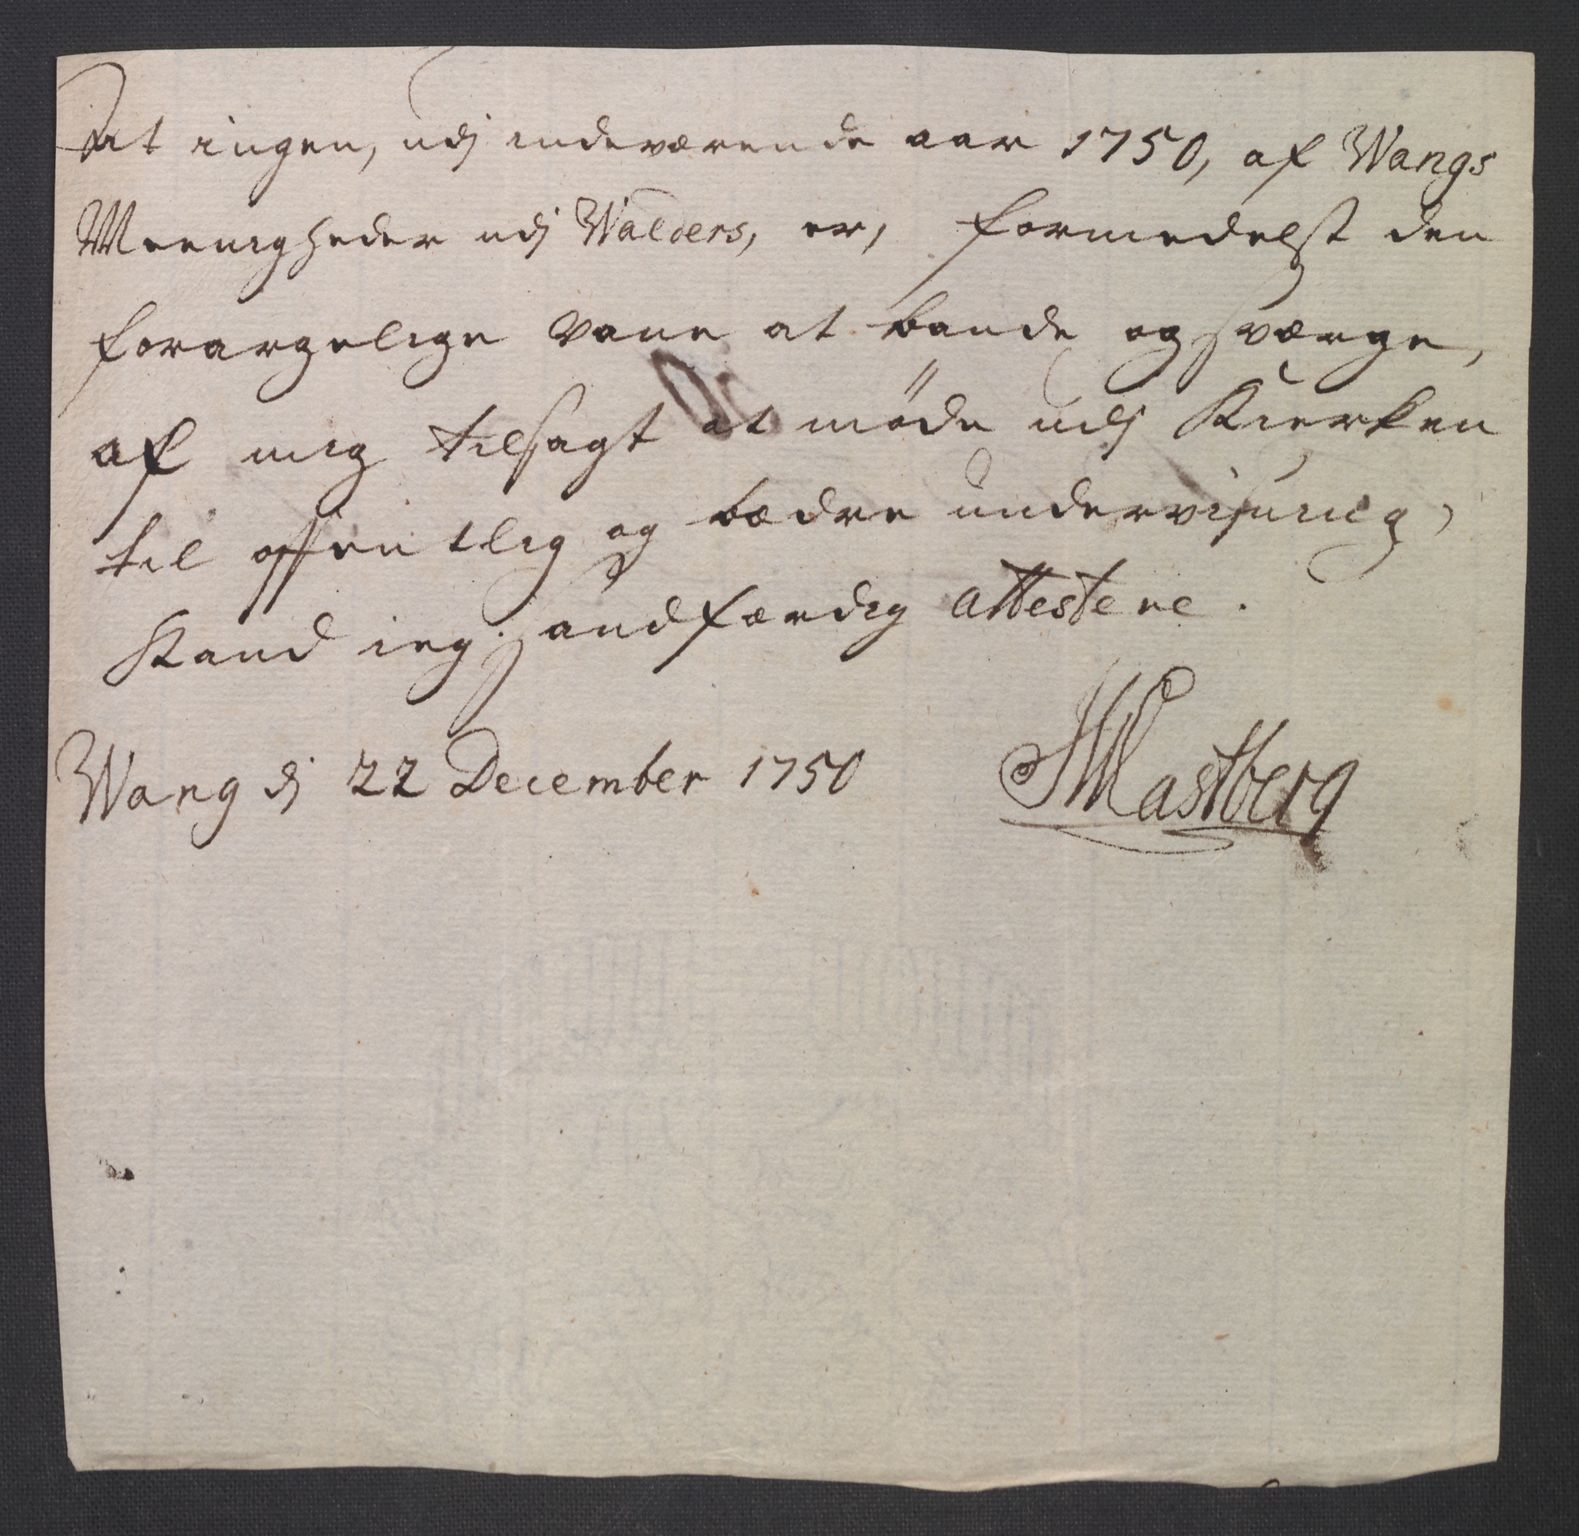 At ingen, udj indeværende aar 1750, af Wangs
Meenigheder udj Walders, er, formedelst den
forargelige Vane at bande og sværge,
af mig tilsagt at møde udj Kierken
til offentlig og bædre underviisning,
Kand ieg sandfærdig attestere.
Wang dj 22 December 1750
Wastberg